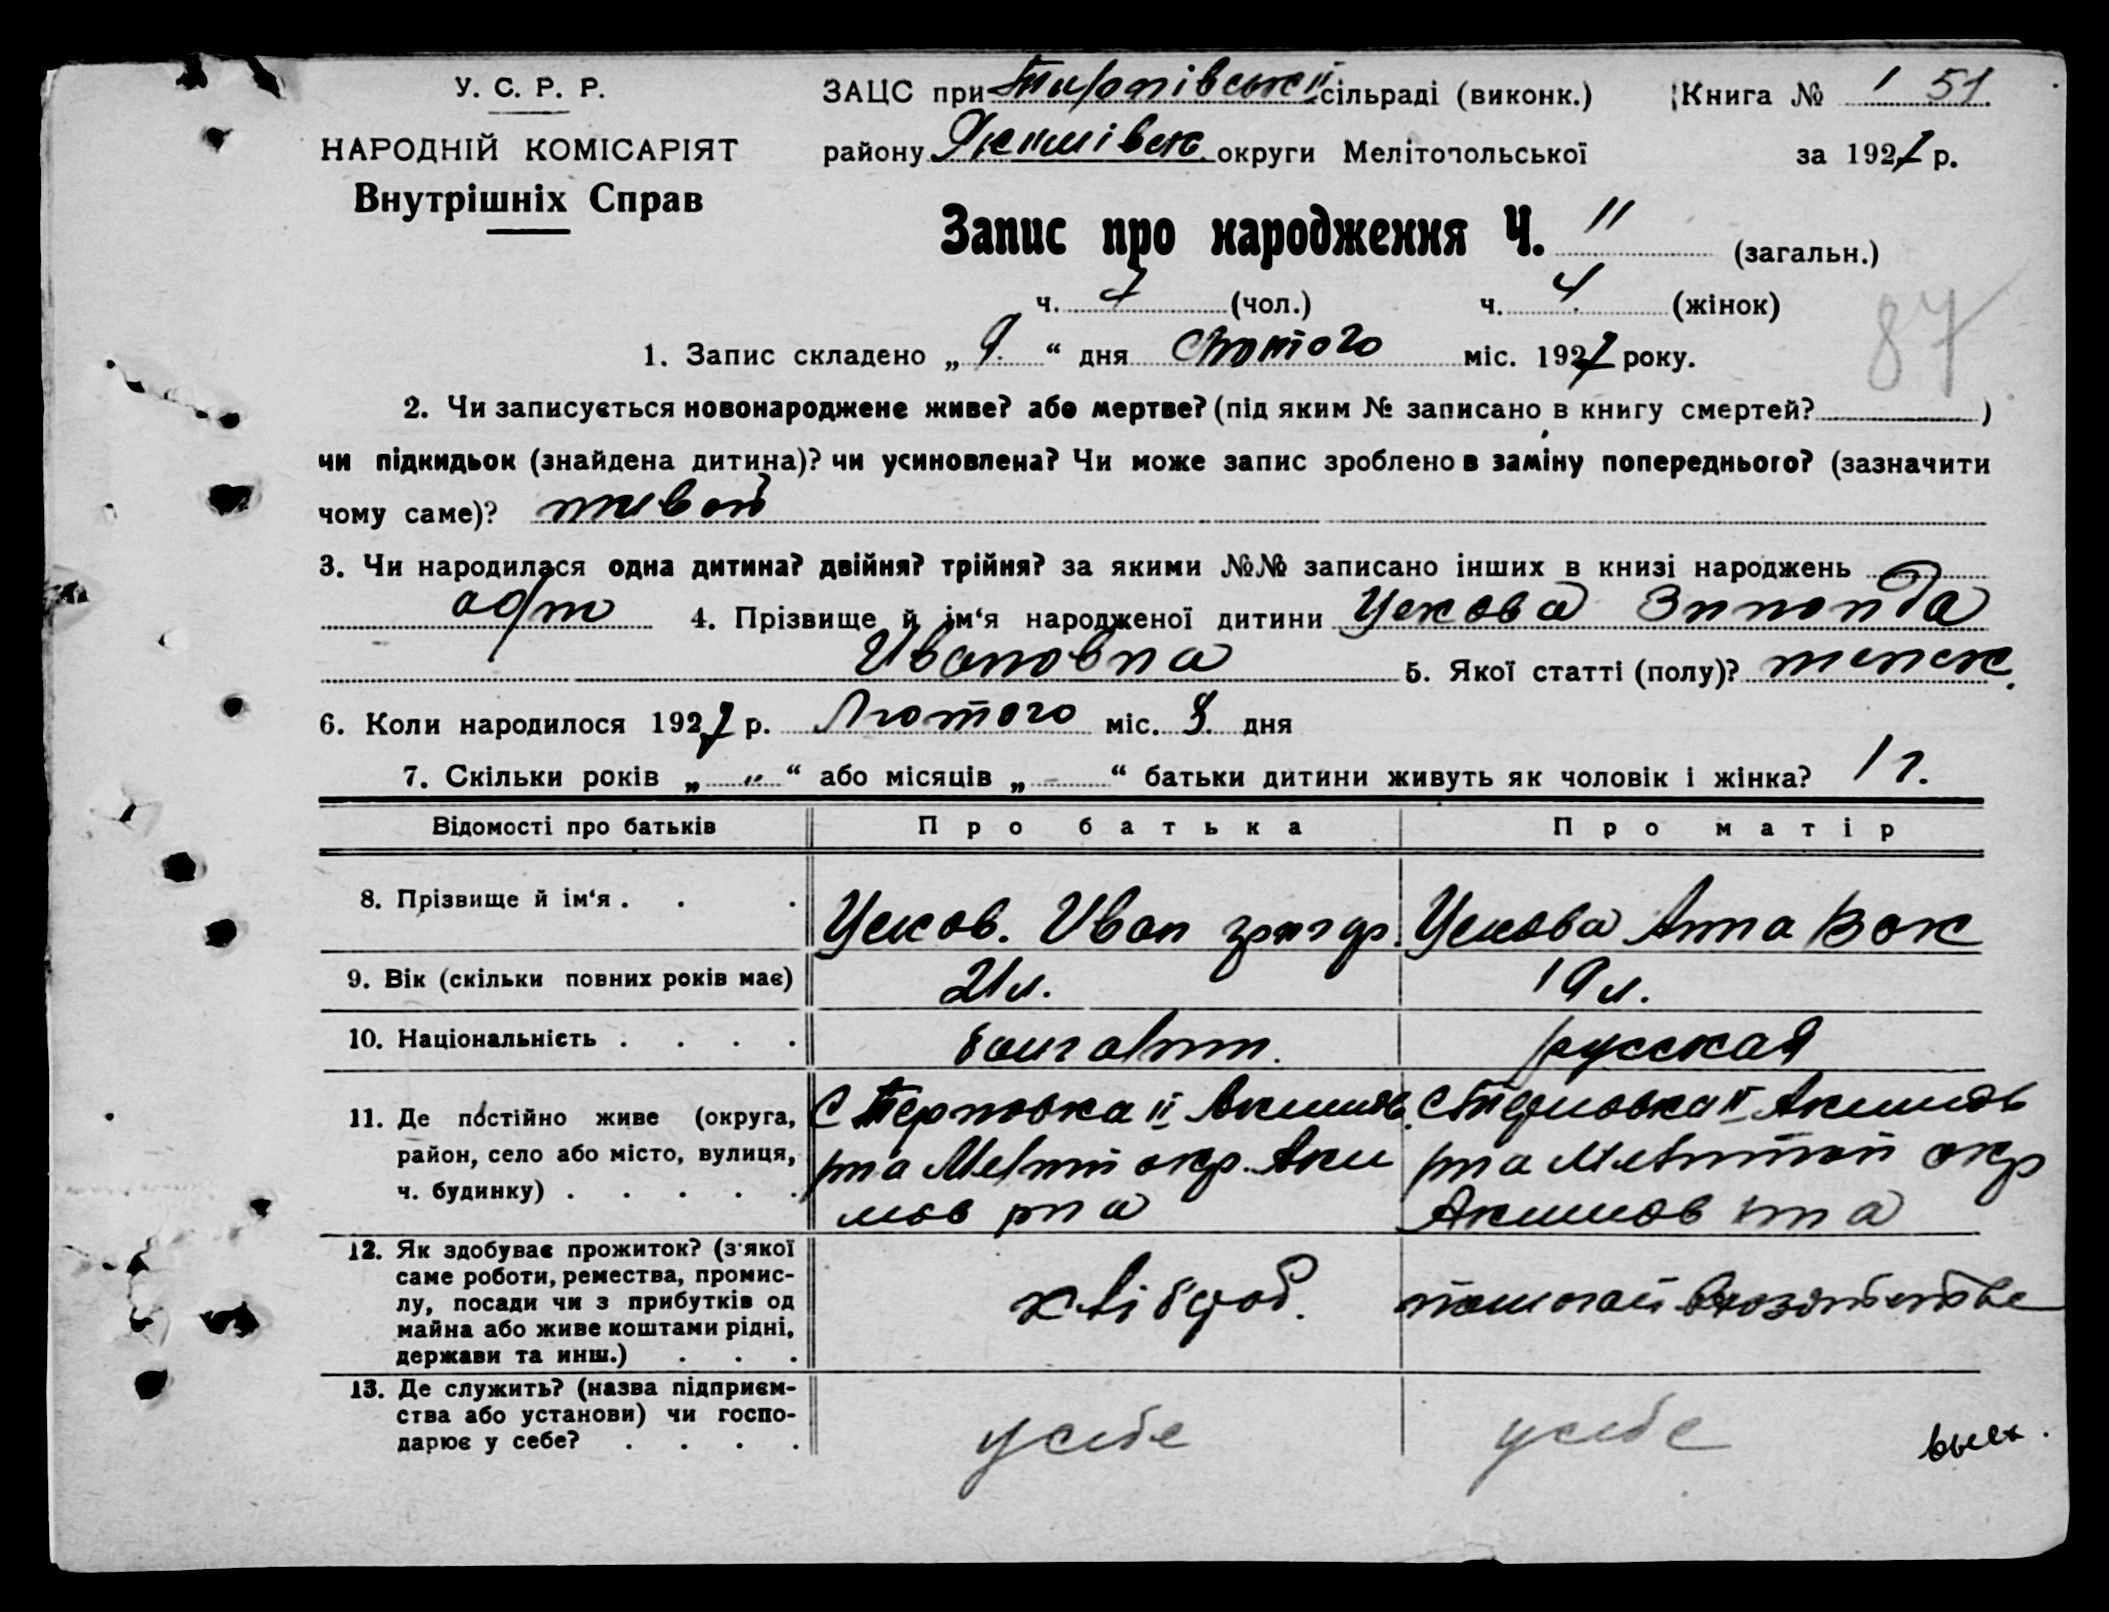 У. С. Р. Р.
НАРОДНІЙ КОМІСАРІЯТ
Внутрішніх Справ
ЗАЦС при сільраді (виконк.) Книга № 1 51
району округи Мелітопольської за 1927 р.
Запис про народження Ч. 11 (загальн.)
ч. 7 (чол.) ч. 4 (жінок)
87
1. Запис складено „ 9. “ дня Лютого міс. 1927 року.
2. Чи записується новонароджене живе? або мертве? (під яким № записано в книгу смертей? )
чи підкидьок (знайдена дитина)? чи усиновлена? Чи може запис зроблено в заміну попереднього? (зазначити
чому саме)? живой
3. Чи народилася одна дитина? двійня? трійня? за якими №№ записано інших в книзі народжень
4. Прізвище й ім‘я народженої дитини Ускова Зинаида
Ивановна 5. Якої статті (полу)? женск.
6. Коли народилося 1927 р. Лютого міс. 8. дня
7. Скільки років „ “ або місяців „ - “ батьки дитини живуть як чоловік і жінка? 1 г.
Відомості про батьків Про батька Про матір
8. Прізвище й ім‘я . . . Усков. Иван григор. Ускова Анна
9. Вік (скільки повних років має) 21 л. 19 л.
10. Національність . . . . болгарин. русская
11. Де постійно живе (округа, С Терновка II Акимов. С Терновка II Акимов
район, село або місто, вулиця, р на Мелит окр. Аки р на Мелитоп окр
ч. будинку) . . . . . мов рн а Акимов рн а
12. Як здобуває прожиток? (з'якої
саме роботи, ремества, промис-
лу, посади чи з прибутків од хлібороб.
майна або живе коштами рідні,
держави та инш.) . . .
13. Де служить? (назва підприєм-
ства або установи) чи госпо- у себе у себе
дарює у себе? . . . .